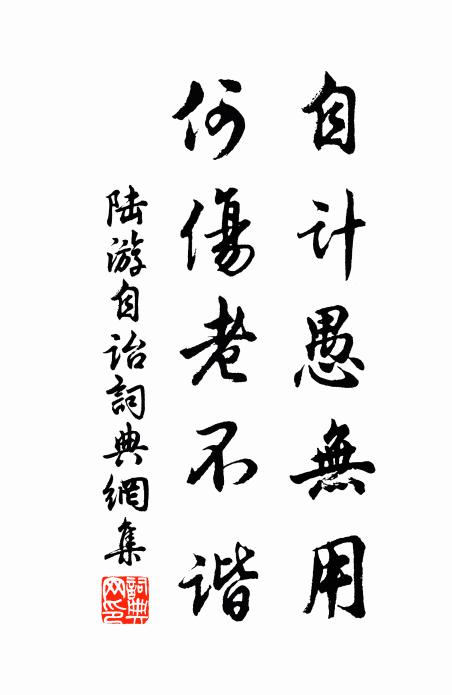 自计愚無用
何傷老不谐
陆游自诒詞典網集
詞典网印